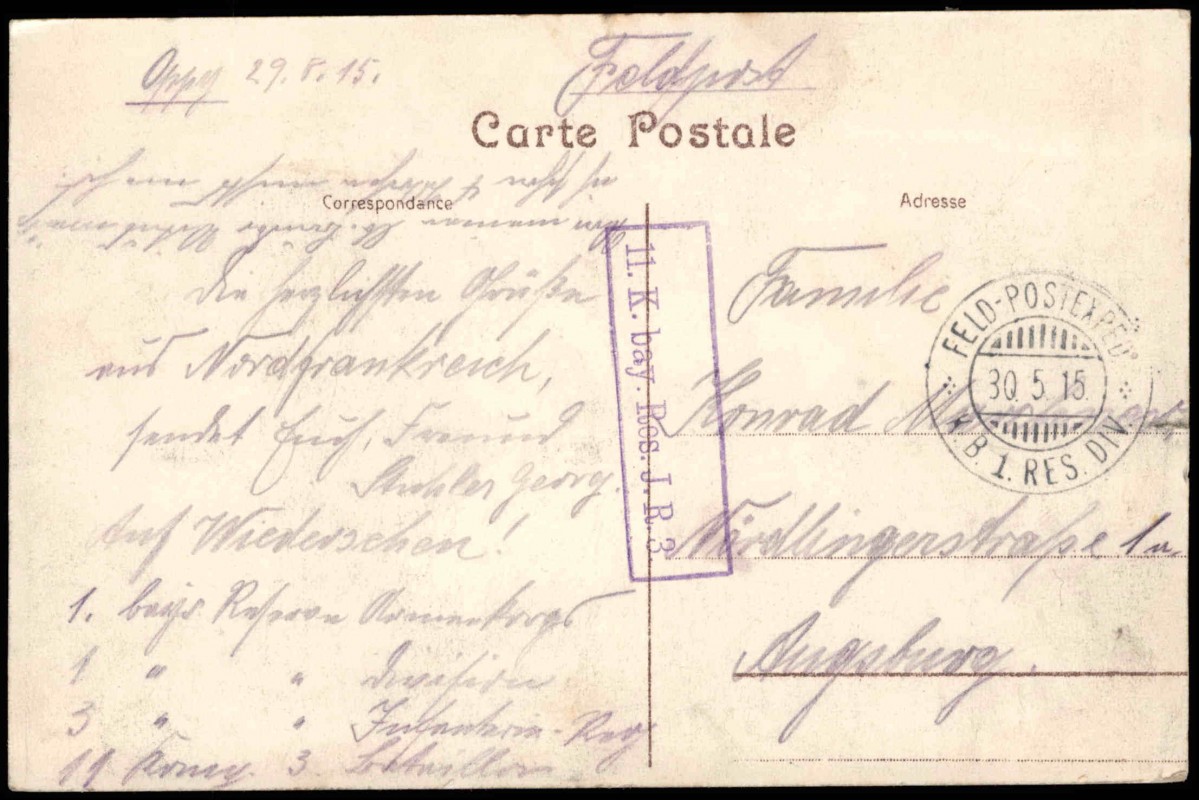 Oppy 29.5.15.
Feldpost
Carte Postale
Correspondance
Adresse
Die herzlichsten Grüße
aus Nordfrankreich,
sendet Euch, Freund
Georg.
Auf Wiedersehen!
1. bayr. Reserve Armeekorps
1 " " Division
3 " " Infanterie-Reg
11 Komp. 3. Bataillon
11. K. bay. Res. J. R. 3
Familie
Konrad
Nördlingerstraße 1a
Augsburg.
FELD-POSTEXPED.
30. 5. 15.
K. B. 1. RES. DIV.